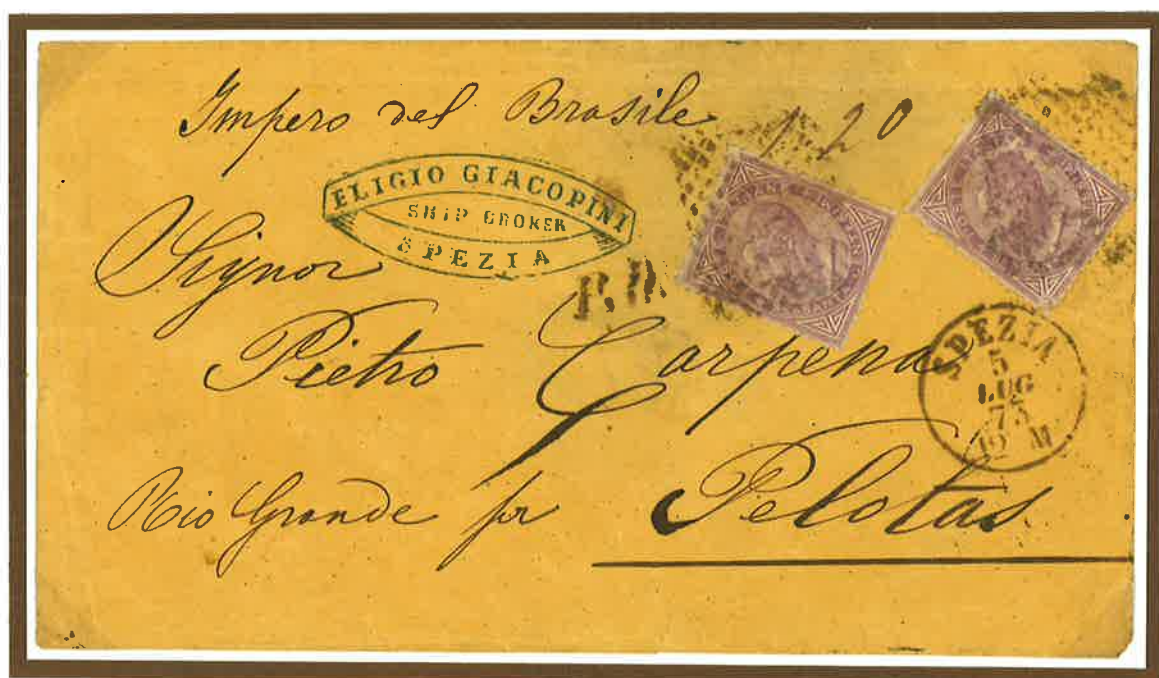 Impero del Brasile
1.20
ELIGIO GIACOPINI
SHIP BROKER
SPEZIA
Signor
P.D.
Pietro Carpena
SPEZIA
5
LUG
73
12 M
Rio Grande per Pelotas